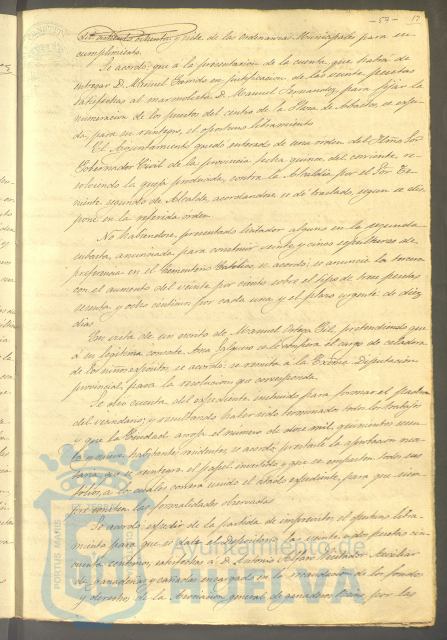 - 57 - 17
y siete de las Ordenanzas Municipales para su
cumplimiento.
Se acordó: que a la presentación de la cuenta que habrá de
entregar D. Manuel Garrido en justificación de las veinte pesetas
satisfechas al marmolista D. Manuel Fernandez, para fijar la
numeracion de los puestos del centro de la Plaza de Abastos, se expi-
da, para su reintegro, el oportuno libramiento.
El Ayuntamiento quedó enterado de una orden del Iltmo Sor
Gobernador Civil de la provincia fecha quince del corriente re-
solviendo la queja producida, contra la Alcaldia por el Sor Te-
niente segundo de Alcalde, acordandose se dé traslado, segun se dis-
pone en la referida orden.
No habiendose presentado licitador alguno en la segunda
subasta, anunciada para construir veinte y cinco sepulturas de
preferencia en el Cementerio Católico, se acordó: se anuncie la tercera
con el aumento del veinte por ciento sobre el tipo de trece pesetas
sesenta y ocho centimos por cada una y el plazo urgente de diez
dias
En vista de un escrito de Manuel Ortega Gil pretendiendo que
a su legitima consorte Ana se le confiera el cargo de celadora
de los niños expositos, se acordó: se remita á la Excma Diputación
provincial, para la resolucion que corresponda.
Se dió cuenta del expediente instruido para formar el padron
del vecindario; y resultando haberse terminado todos los trabajos
y que la Ciudad arroja el número de doce mil quinientos
nueve habitantes residentes, se acordó: prestarle la aprobacion
se reintegre el papel invertido y que se impriman todos sus
folios, a los cuales correrá unido el citado expediente, para que siem-
pre consten las formalidades observadas
Se acordó expedir de la partida de imprevistos el oportuno libra-
miento para que se date el Depositario las cuenta y ocho pesetas cin-
cuenta centimos, satisfechas á D. Antonio Visitador Auxiliar
de ganaderias y cañadas encargado en la recaudación de los fondos
y derechos de la Asociacion general de ganaderos por las
Ayuntamiento de
HUELVA
PORTUS MARIS